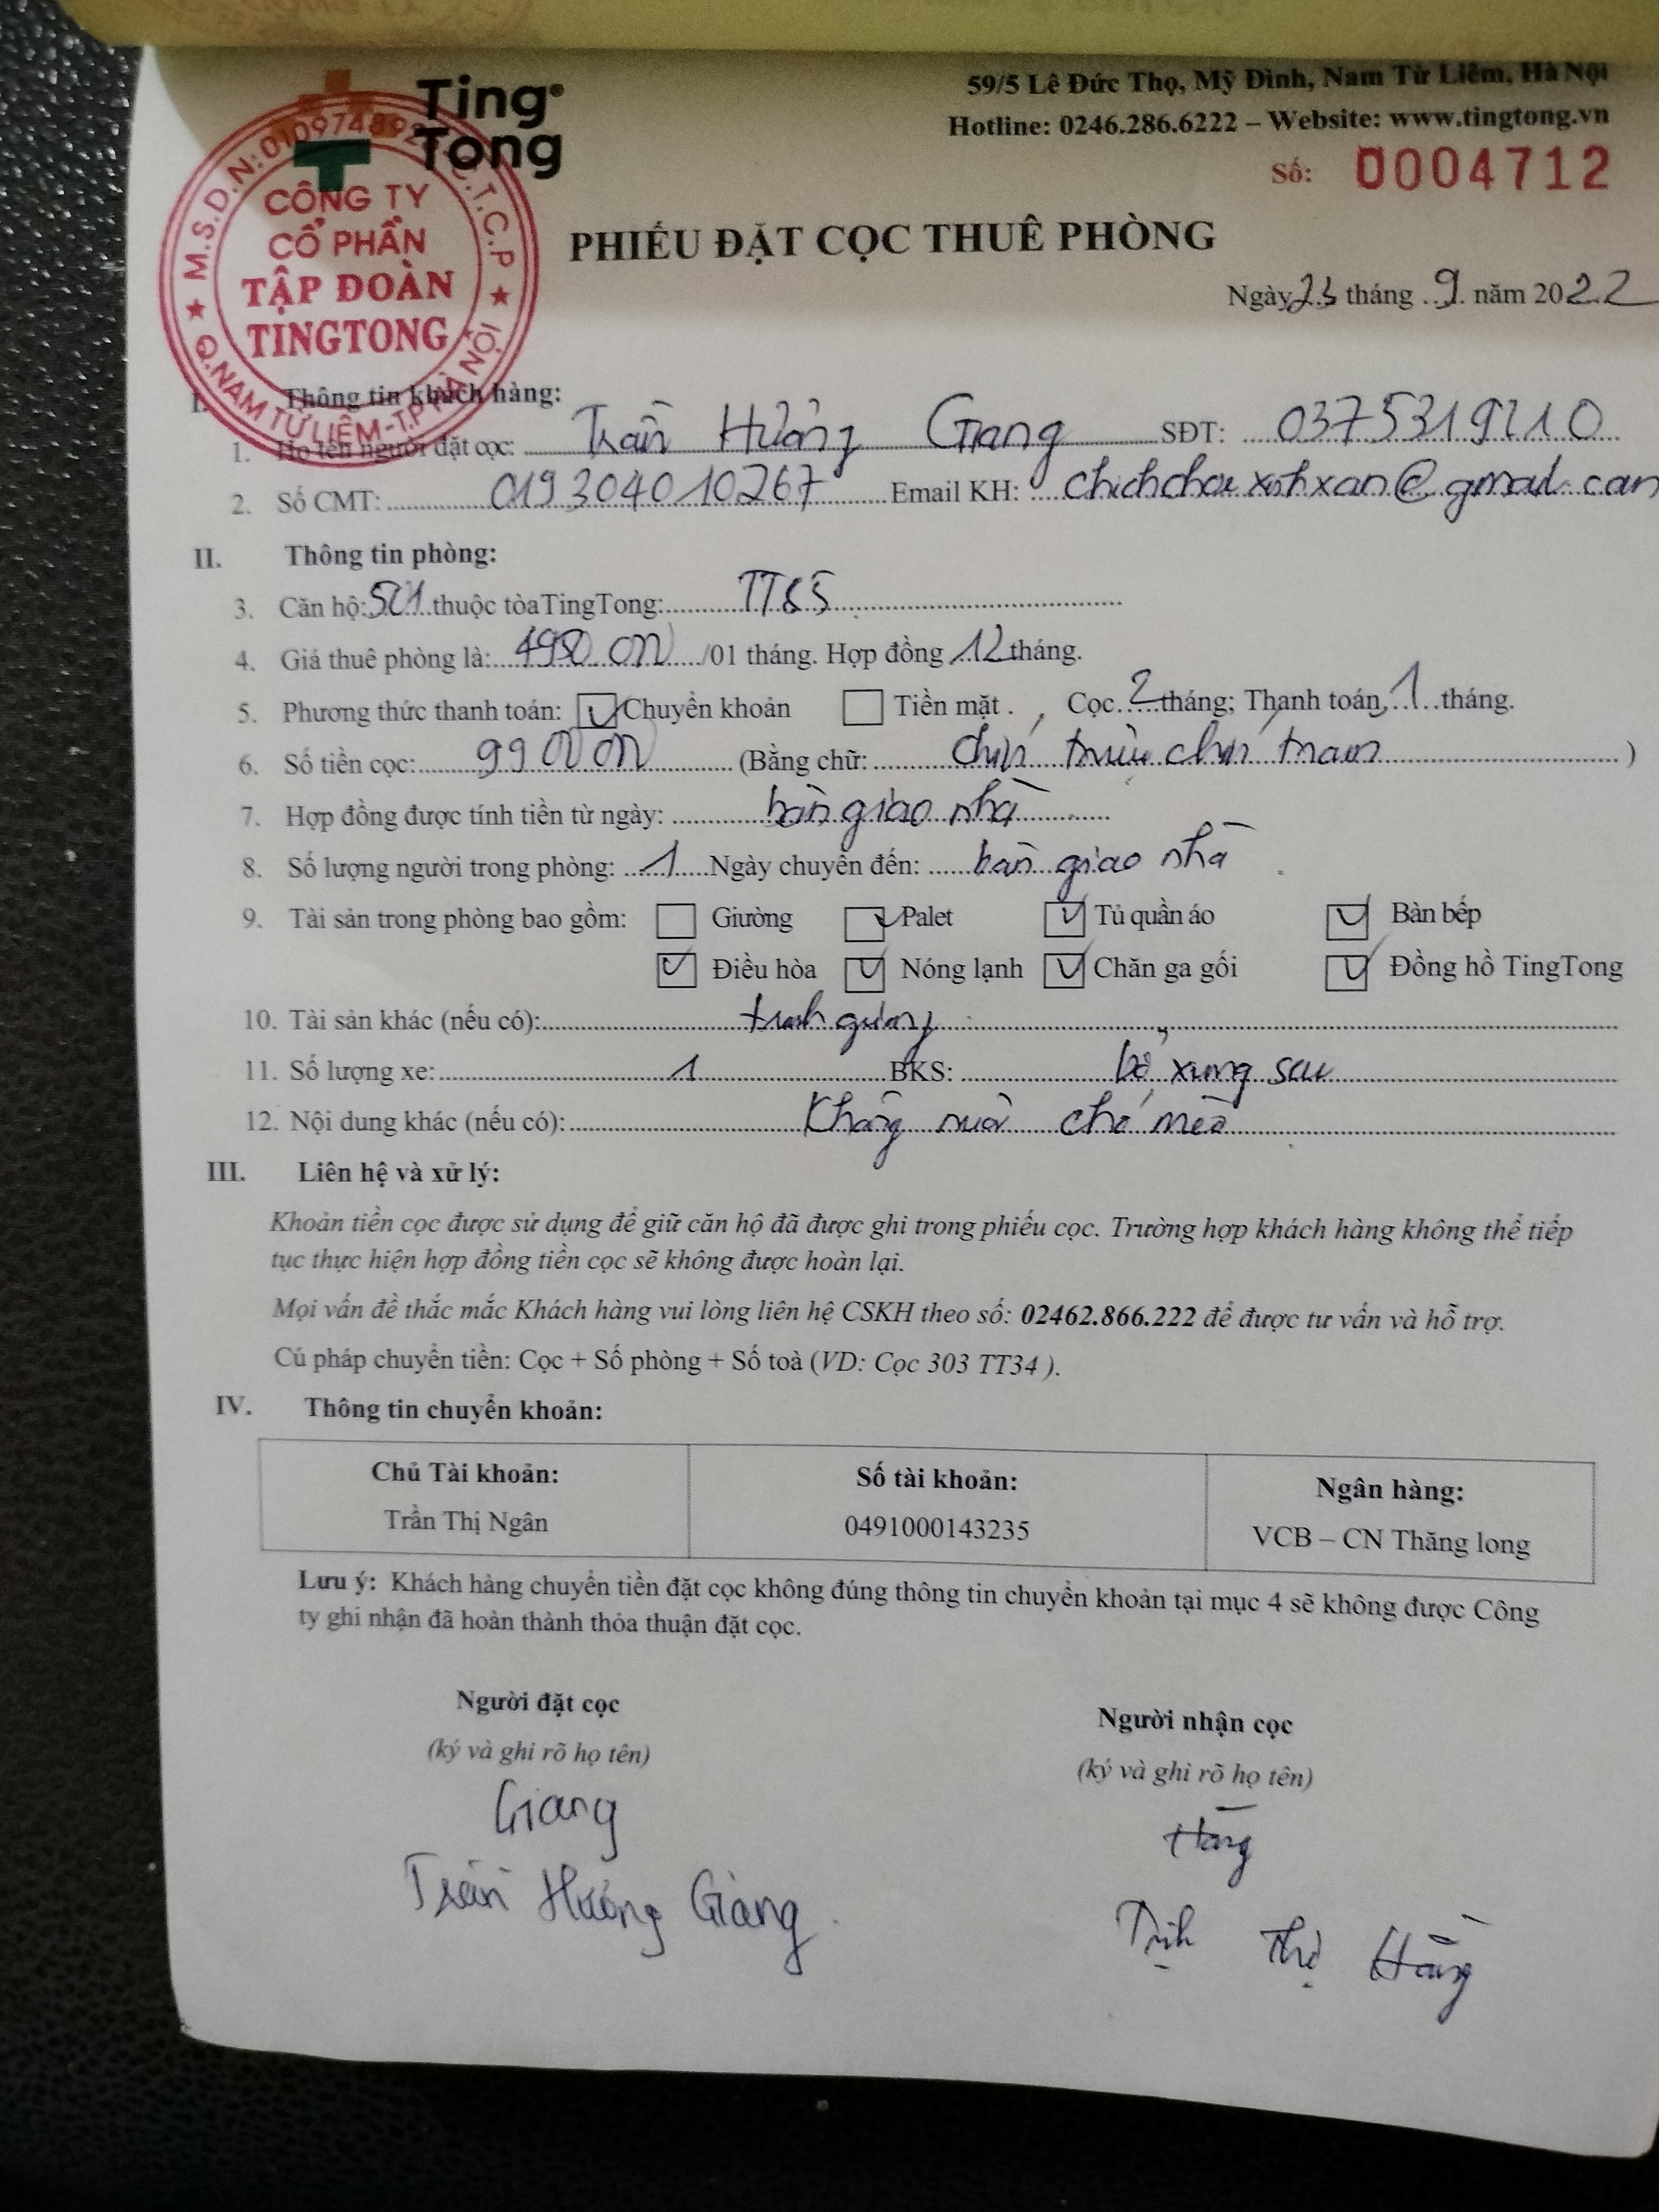 Ting
Tong
59/5 Lê Đức Thọ, Mỹ Đình, Nam Từ Liêm, Hà Nội
Hotline: 0246.286.6222 – Website: www.tingtong.vn
Số: 0004712
CÔNG TY
CỔ PHẦN
TẬP ĐOÀN
TINGTONG
Q.NAM TỪ LIÊM-T.P HÀ NỘI
PHIẾU ĐẶT CỌC THUÊ PHÒNG
Ngày 23 tháng 9 năm 2022
I. Thông tin khách hàng:
1. Họ tên người đặt cọc: Trần Hương Giang SĐT:
2. Số CMT: 019304010267 Email KH: @gmail.com
II. Thông tin phòng:
3. Căn hộ: 501 thuộc tòa TingTong: TT65
4. Giá thuê phòng là: /01 tháng. Hợp đồng 12 tháng.
5. Phương thức thanh toán: Chuyển khoản Tiền mặt. Cọc 2 tháng; Thanh toán 1 tháng.
6. Số tiền cọc: (Bằng chữ: chín triệu chín trăm )
7. Hợp đồng được tính tiền từ ngày: bàn giao nhà
8. Số lượng người trong phòng: 1 Ngày chuyển đến: bàn giao nhà
9. Tài sản trong phòng bao gồm: Giường Palet Tủ quần áo Bàn bếp
Điều hòa Nóng lạnh Chăn ga gối Đồng hồ TingTong
10. Tài sản khác (nếu có):
11. Số lượng xe: 1 BKS: bổ xung sau
12. Nội dung khác (nếu có): Không nuôi chó mèo
III. Liên hệ và xử lý:
Khoản tiền cọc được sử dụng để giữ căn hộ đã được ghi trong phiếu cọc. Trường hợp khách hàng không thể tiếp
tục thực hiện hợp đồng tiền cọc sẽ không được hoàn lại.
Mọi vấn đề thắc mắc Khách hàng vui lòng liên hệ CSKH theo số: 02462.866.222 để được tư vấn và hỗ trợ.
Cú pháp chuyển tiền: Cọc + Số phòng + Số toà (VD: Cọc 303 TT34 ).
IV. Thông tin chuyển khoản:
Chủ Tài khoản: Số tài khoản: Ngân hàng:
Trần Thị Ngân 0491000143235 VCB – CN Thăng long
Lưu ý: Khách hàng chuyển tiền đặt cọc không đúng thông tin chuyển khoản tại mục 4 sẽ không được Công
ty ghi nhận đã hoàn thành thỏa thuận đặt cọc.
Người đặt cọc Người nhận cọc
(ký và ghi rõ họ tên) (ký và ghi rõ họ tên)
Giang Hằng
Trần Hương Giang Trịnh Thị Hằng